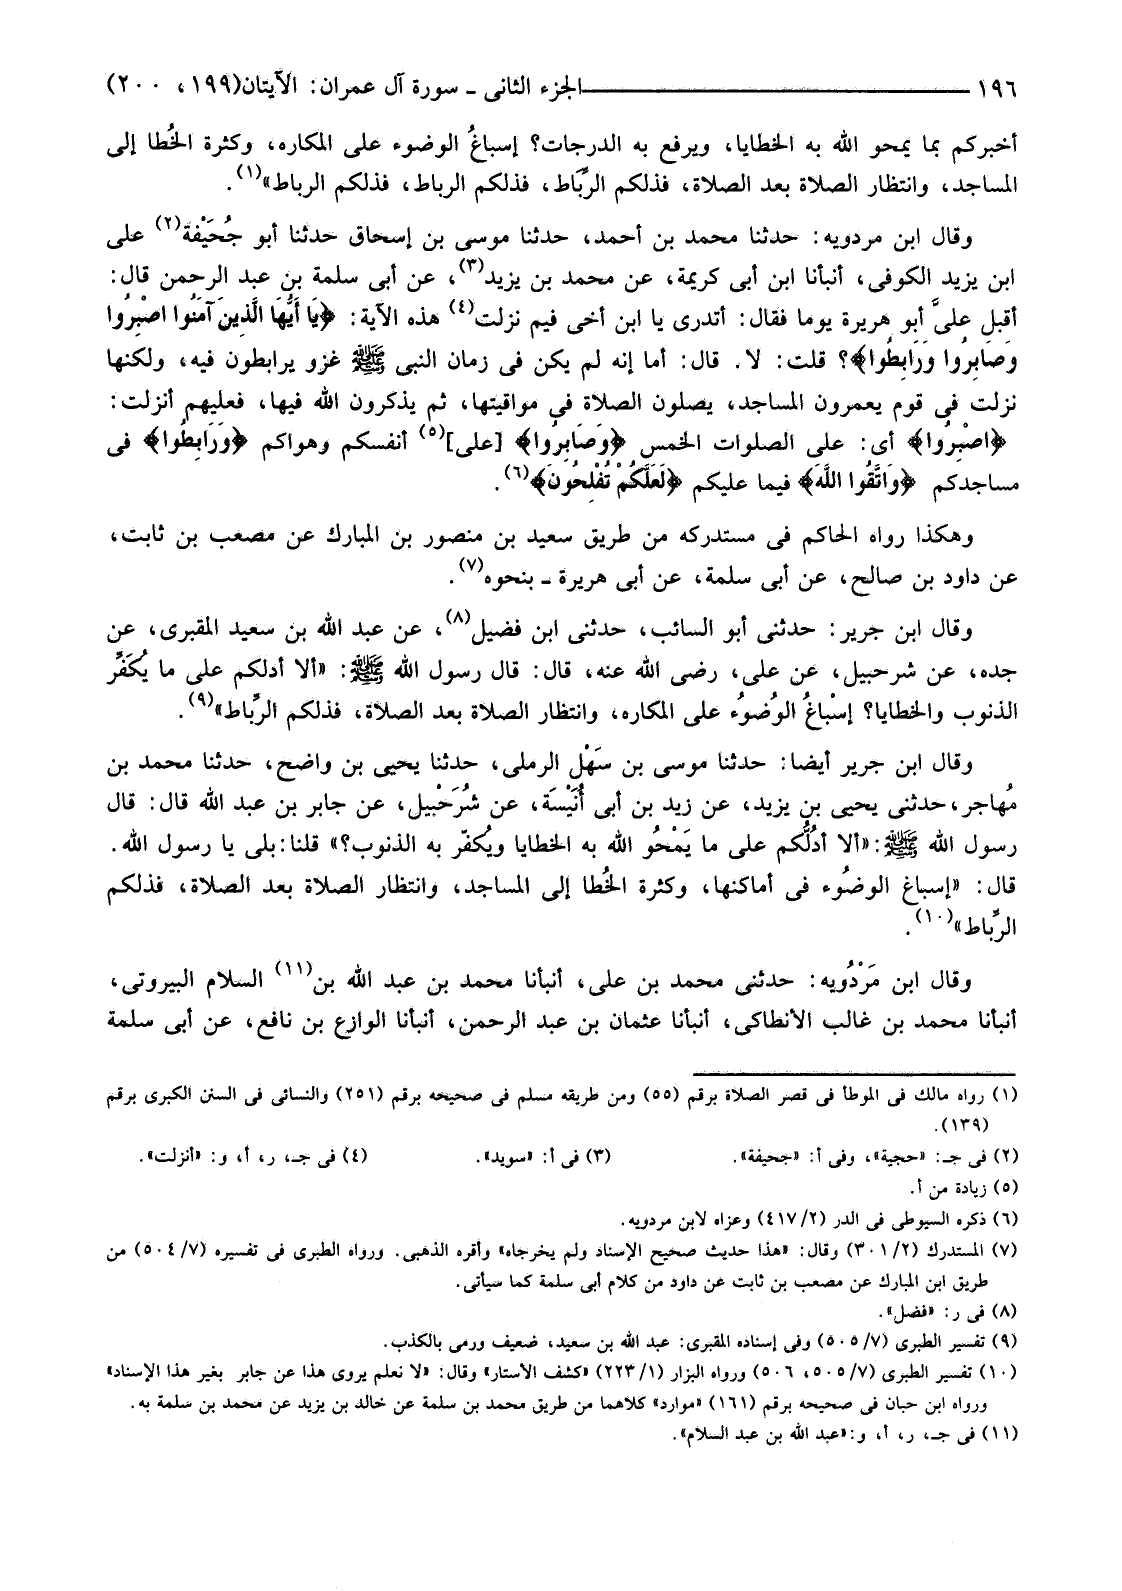 ١٩٦ ــــــــــــــــ الجزء الثانى ـ سورة آل عمران: الآيتان(١٩٩، ٢٠٠)
أخبركم بما يمحو الله به الخطايا، ويرفع به الدرجات؟ إسباغُ الوضوء على المكاره، وكثرة الخُطا إلى
المساجد، وانتظار الصلاة بعد الصلاة، فذلكم الرِّبَاط، فذلكم الرباط، فذلكم الرباط»(١).
وقال ابن مردويه: حدثنا محمد بن أحمد، حدثنا موسى بن إسحاق حدثنا أبو جُحَيْفة(٢) على
ابن يزيد الكوفى، أنبأنا ابن أبى كريمة، عن محمد بن يزيد(٣)، عن أبى سلمة بن عبد الرحمن قال:
أقبل علىَّ أبو هريرة يوما فقال: أتدرى يا ابن أخى فيم نزلت(٤) هذه الآية: ﴿يَا أَيُّهَا الَّذِينَ آمَنُوا اصْبِرُوا
وَصَابِرُوا وَرَابِطُوا﴾؟ قلت: لا. قال: أما إنه لم يكن فى زمان النبى ﷺ غزو يرابطون فيه، ولكنها
نزلت فى قوم يعمرون المساجد، يصلون الصلاة فى مواقيتها، ثم يذكرون الله فيها، فعليهم أنزلت:
﴿اصْبِرُوا﴾ أى: على الصلوات الخمس ﴿وَصَابِرُوا﴾ [على](٥) أنفسكم وهواكم ﴿وَرَابِطُوا﴾ فى
مساجدكم ﴿وَاتَّقُوا اللَّهَ﴾ فيما عليكم ﴿لَعَلَّكُمْ تُفْلِحُونَ﴾(٦).
وهكذا رواه الحاكم فى مستدركه من طريق سعيد بن منصور بن المبارك عن مصعب بن ثابت،
عن داود بن صالح، عن أبى سلمة، عن أبى هريرة ـ بنحوه(٧).
وقال ابن جرير: حدثنى أبو السائب، حدثنى ابن فضيل(٨)، عن عبد الله بن سعيد المقبرى، عن
جده، عن شرحبيل، عن على، رضى الله عنه، قال: قال رسول الله ﷺ: «ألا أدلكم على ما يُكَفِّر
الذنوب والخطايا؟ إسْباغُ الوُضوُء على المكاره، وانتظار الصلاة بعد الصلاة، فذلكم الرِّباط»(٩).
وقال ابن جرير أيضا: حدثنا موسى بن سَهْل الرملى، حدثنا يحيى بن واضح، حدثنا محمد بن
مُهاجر، حدثنى يحيى بن يزيد، عن زيد بن أبى أُنَيْسَة، عن شُرَحْبيل، عن جابر بن عبد الله قال: قال
رسول الله ﷺ:«ألا أدُلُّكم على ما يَمْحُو الله به الخطايا ويُكفّر به الذنوب؟» قلنا:بلى يا رسول الله.
قال: «إسباغ الوضُوء فى أماكنها، وكثرة الخُطا إلى المساجد، وانتظار الصلاة بعد الصلاة، فذلكم
الرِّباط»(١٠).
وقال ابن مَرْدُويه: حدثنى محمد بن على، أنبأنا محمد بن عبد الله بن(١١) السلام البيروتى،
أنبأنا محمد بن غالب الأنطاكى، أنبأنا عثمان بن عبد الرحمن، أنبأنا الوازع بن نافع، عن أبى سلمة
(١) رواه مالك فى الموطأ فى قصر الصلاة برقم (٥٥) ومن طريقه مسلم فى صحيحه برقم (٢٥١) والنسائى فى السنن الكبرى برقم
(١٣٩).
(٢) فى جـ: «حجية»، وفى أ: «جحيفة». (٣) فى أ: «سويد». (٤) فى جـ، ر، أ، و: «أنزلت».
(٥) زيادة من أ.
(٦) ذكره السيوطى فى الدر (٤١٧/٢) وعزاه لابن مردويه.
(٧) المستدرك (٣٠١/٢) وقال: «هذا حديث صحيح الإسناد ولم يخرجاه» وأقره الذهبى. ورواه الطبرى فى تفسيره (٥٠٤/٧) من
طريق ابن المبارك عن مصعب بن ثابت عن داود من كلام أبى سلمة كما سيأتى.
(٨) فى ر: «فضل».
(٩) تفسير الطبرى (٥٠٥/٧) وفى إسناده المقبرى: عبد الله بن سعيد، ضعيف ورمى بالكذب.
(١٠) تفسير الطبرى (٥٠٥/٧، ٥٠٦) ورواه البزار (٢٢٣/١) «كشف الأستار» وقال: «لا نعلم يروى هذا عن جابر بغير هذا الإسناد»
ورواه ابن حبان فى صحيحه برقم (١٦١) «موارد» كلاهما من طريق محمد بن سلمة عن خالد بن يزيد عن محمد بن سلمة به.
(١١) فى جـ، ر، أ، و:«عبد الله بن عبد السلام».